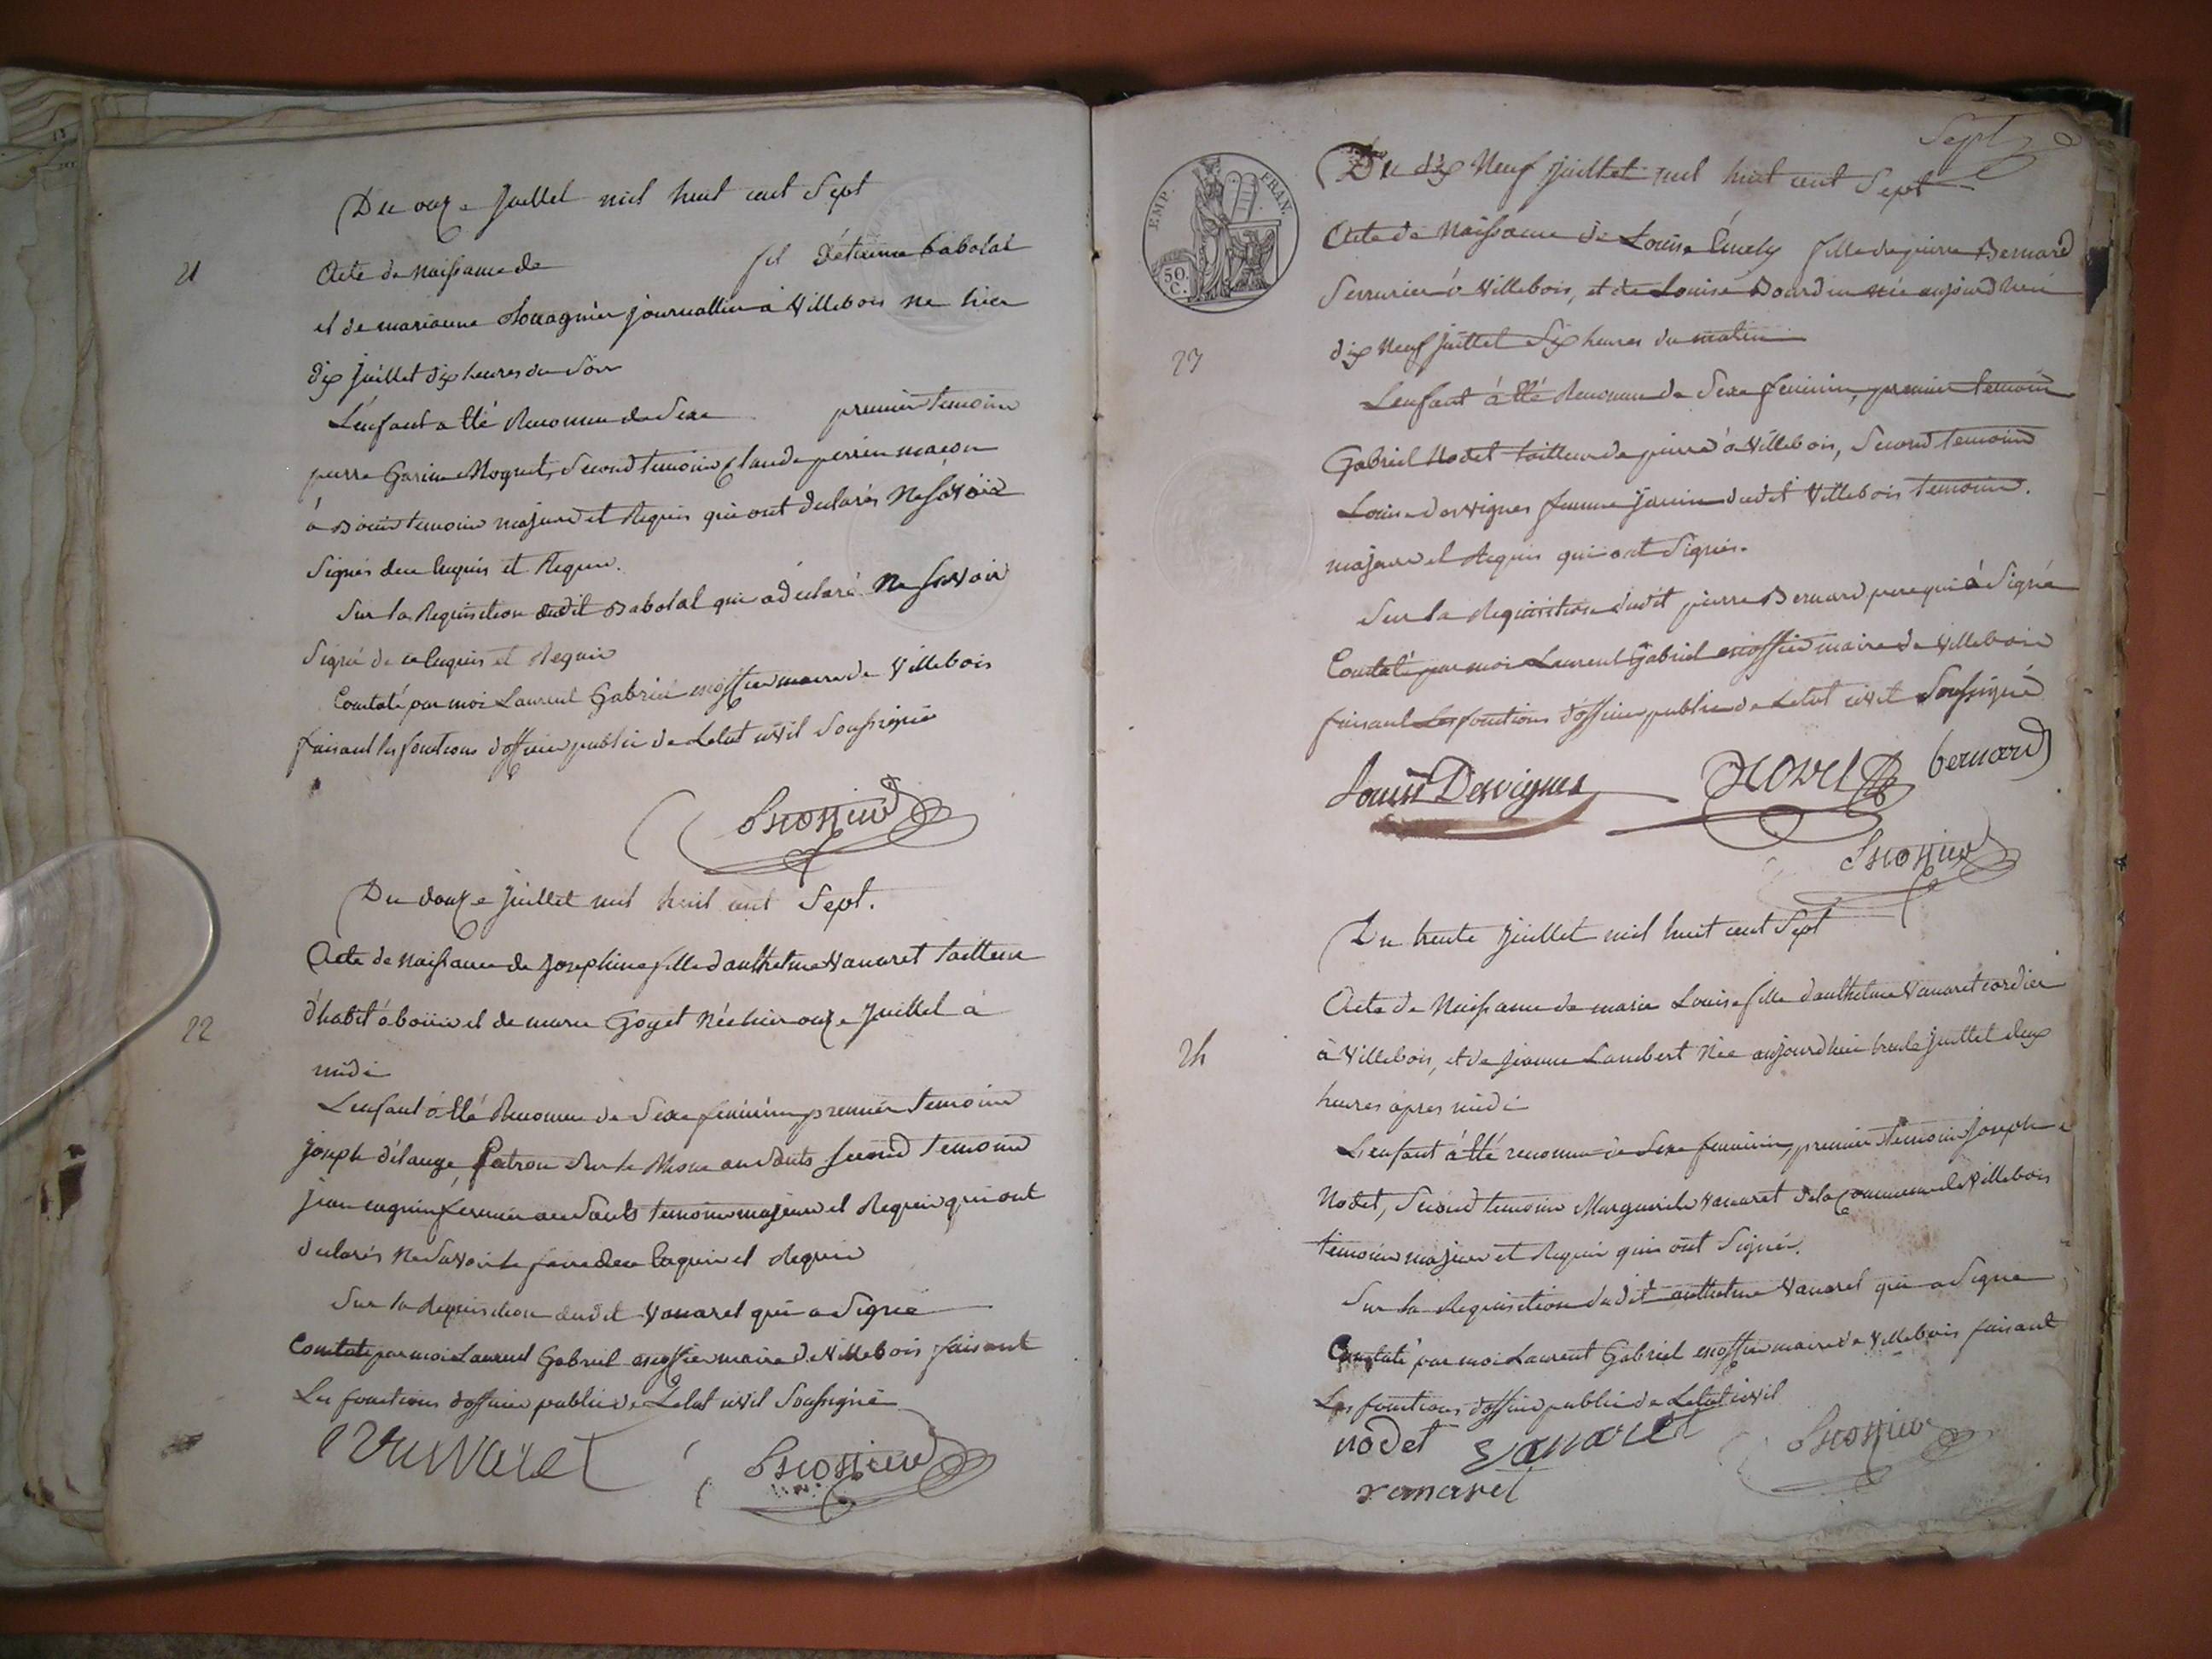 Du onze Juillet mil huit cent Sept
21
Acte de Naissance de fil d'étienne babolat
et de marianne journallier à Villebois ne hier
dix Juillet dix heures du Soir
L'enfant a été Reconnu de Sexe premier temoin
pierre Garin Second temoin Claude perrin maçon
à Bouis temoins majeurs et Requis qui ont declarés Ne Savoir
Signés de ce Enquis et Requis.
Sur la Requisition dudit Babolat qui a declaré Ne Savoir
Signé de ce Enquis et Requis
Constaté par moi Laurent Gabriel escoffier maire de Villebois
faisant les fonctions d'officier public de Letat civil Soussigné
Escoffier
Du douze Juillet mil huit cent Sept.
22
Acte de Naissance de Josephine fille d'anthelme Vanaret tailleur
d'habit à bouis et de marie Goyet Née hier onze Juillet à
midi
L'enfant à été Reconnu de Sexe feminin premier temoin
joseph délange Patron Sur le Rhone au Sault Second temoin
jean fermier au Sault temoins majeurs et Requis qui ont
declarés Ne Savoir le faire de ce Enquis et Requis
Sur la Requisition dudit Vanaret qui a Signé
Constaté par moi Laurent Gabriel escoffier maire de Villebois faisant
Les fonctions d'officier public de Letat civil Soussigné
Vanaret Escoffier
Sept
EMP. FRAN.
50. C.
Du dix Neuf Juillet mil huit cent Sept
23
Acte de Naissance de Louise Emely fille de pierre Bernard
Serrurier à Villebois, et de Louise Bourdin née aujourdhui
dix Neuf Juillet Six heures du matin
L'enfant à été Reconnu de Sexe feminin, premier temoin
Gabriel Nodet tailleur de pierre à Villebois, Second temoin
Louise desvignes femme Janin dudit Villebois temoins
majeurs et Requis qui ont Signés.
Sur la Requisition dudit pierre Bernard pere qui à Signé
Constaté par moi Laurent Gabriel escoffier maire de Villebois
faisant Les fonctions d'officier public de Letat civil Soussigné
Louise Desvignes NODET bernard
Escoffier
Du trente Juillet mil huit cent Sept
24
Acte de Naissance de marie Louise fille d'anthelme Vanaret cordier
à Villebois, et de Jeanne Lambert Née aujourdhui trente Juillet deux
heures apres midi
L'enfant à été reconnu de Sexe feminin, premier temoin Joseph
Nodet, Second temoin Marguerite Vanaret de la Commune de Villebois
temoins majeurs et Requis qui ont Signés.
Sur la Requisition dudit anthelme Vanaret qui a Signé
Constaté par moi Laurent Gabriel escoffier maire de Villebois faisant
Les fonctions d'officier public de Letat civil
nodet Vanaret Escoffier
vanaret